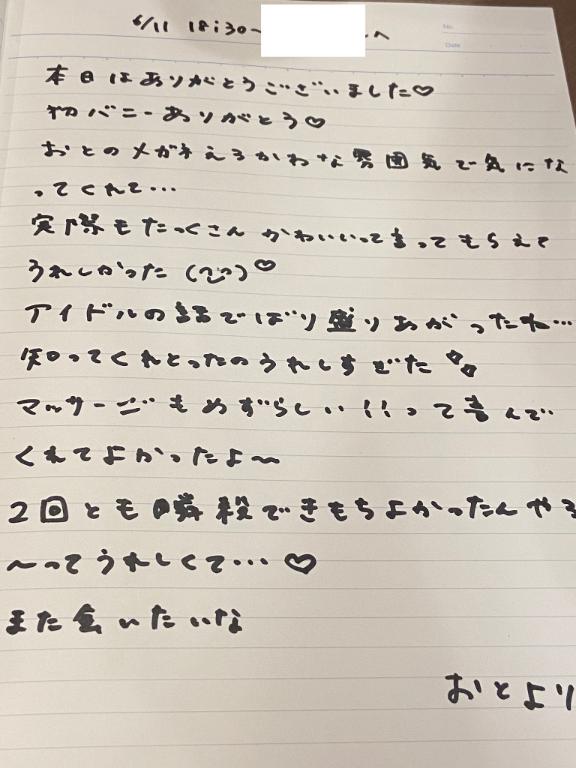 6/11 18:30〜 へ
No.
Date
本日はありがとうございました♡
初バニーありがとう♡
おとのメガネえろかわな雰囲気で気にな
ってくれて…
実際もたっくさんかわいいって言ってもらえて
うれしかった ♡
アイドルの話でばり盛りあがったね…
知ってくれとったのうれしすぎた
マッサージもめずらしい!!って喜んで
くれてよかったよ〜
2回とも瞬殺できもちよかったんやろ
〜ってうれしくて…♡
また会いたいな
おとより